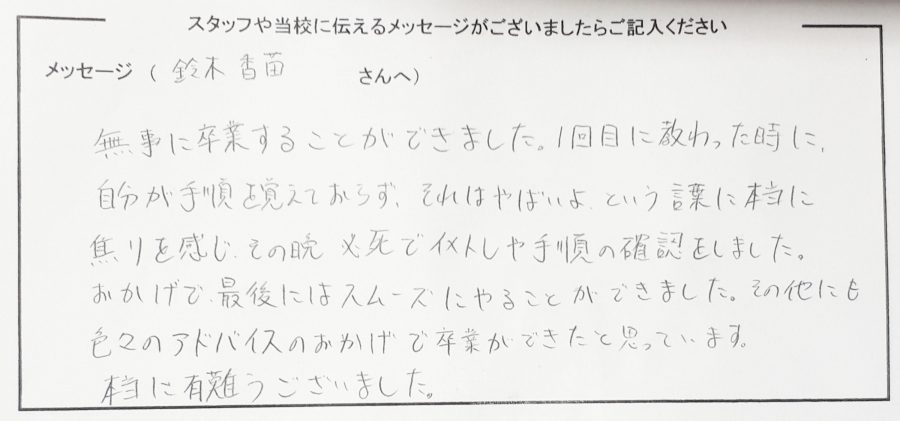 スタッフや当校に伝えるメッセージがございましたらご記入ください
メッセージ ( 鈴木香苗 さんへ)
無事に卒業することができました。1回目に教わった時に、
自分が手順を覚えておらず、それはやばいよ、という言葉に本当に
焦りを感じ、その晩 必死でイメトレや手順の確認をしました。
おかげで、最後にはスムーズにやることができました。その他にも
色々のアドバイスのおかげで卒業ができたと思っています。
本当に有難うございました。